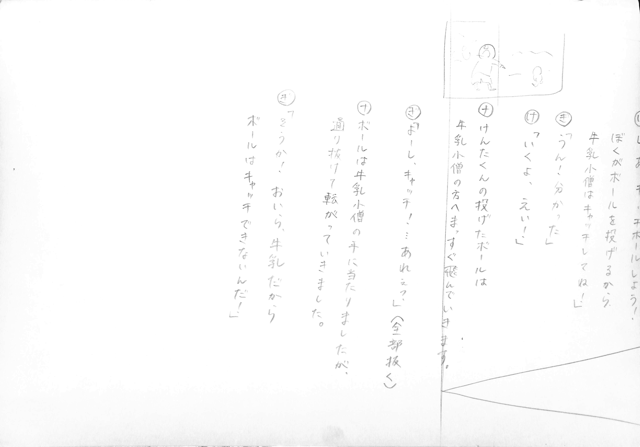 じゃあ、キャッチボールしよう!
ぼくがボールを投げるから
牛乳小僧はキャッチしてね!」
㋖「うん!分かった」
㋘「いくよ、えい!」
㋤ けんたくんの投げたボールは
牛乳小僧の方へまっすぐ飛んでいきます。
㋖「よーし、キャッチ!…あれぇ?」(全部抜く)
㋤ ボールは牛乳小僧の手に当たりましたが、
通り抜けて転がっていきました。
㋖「そうか!おいら、牛乳だから
ボールはキャッチできないんだ!」